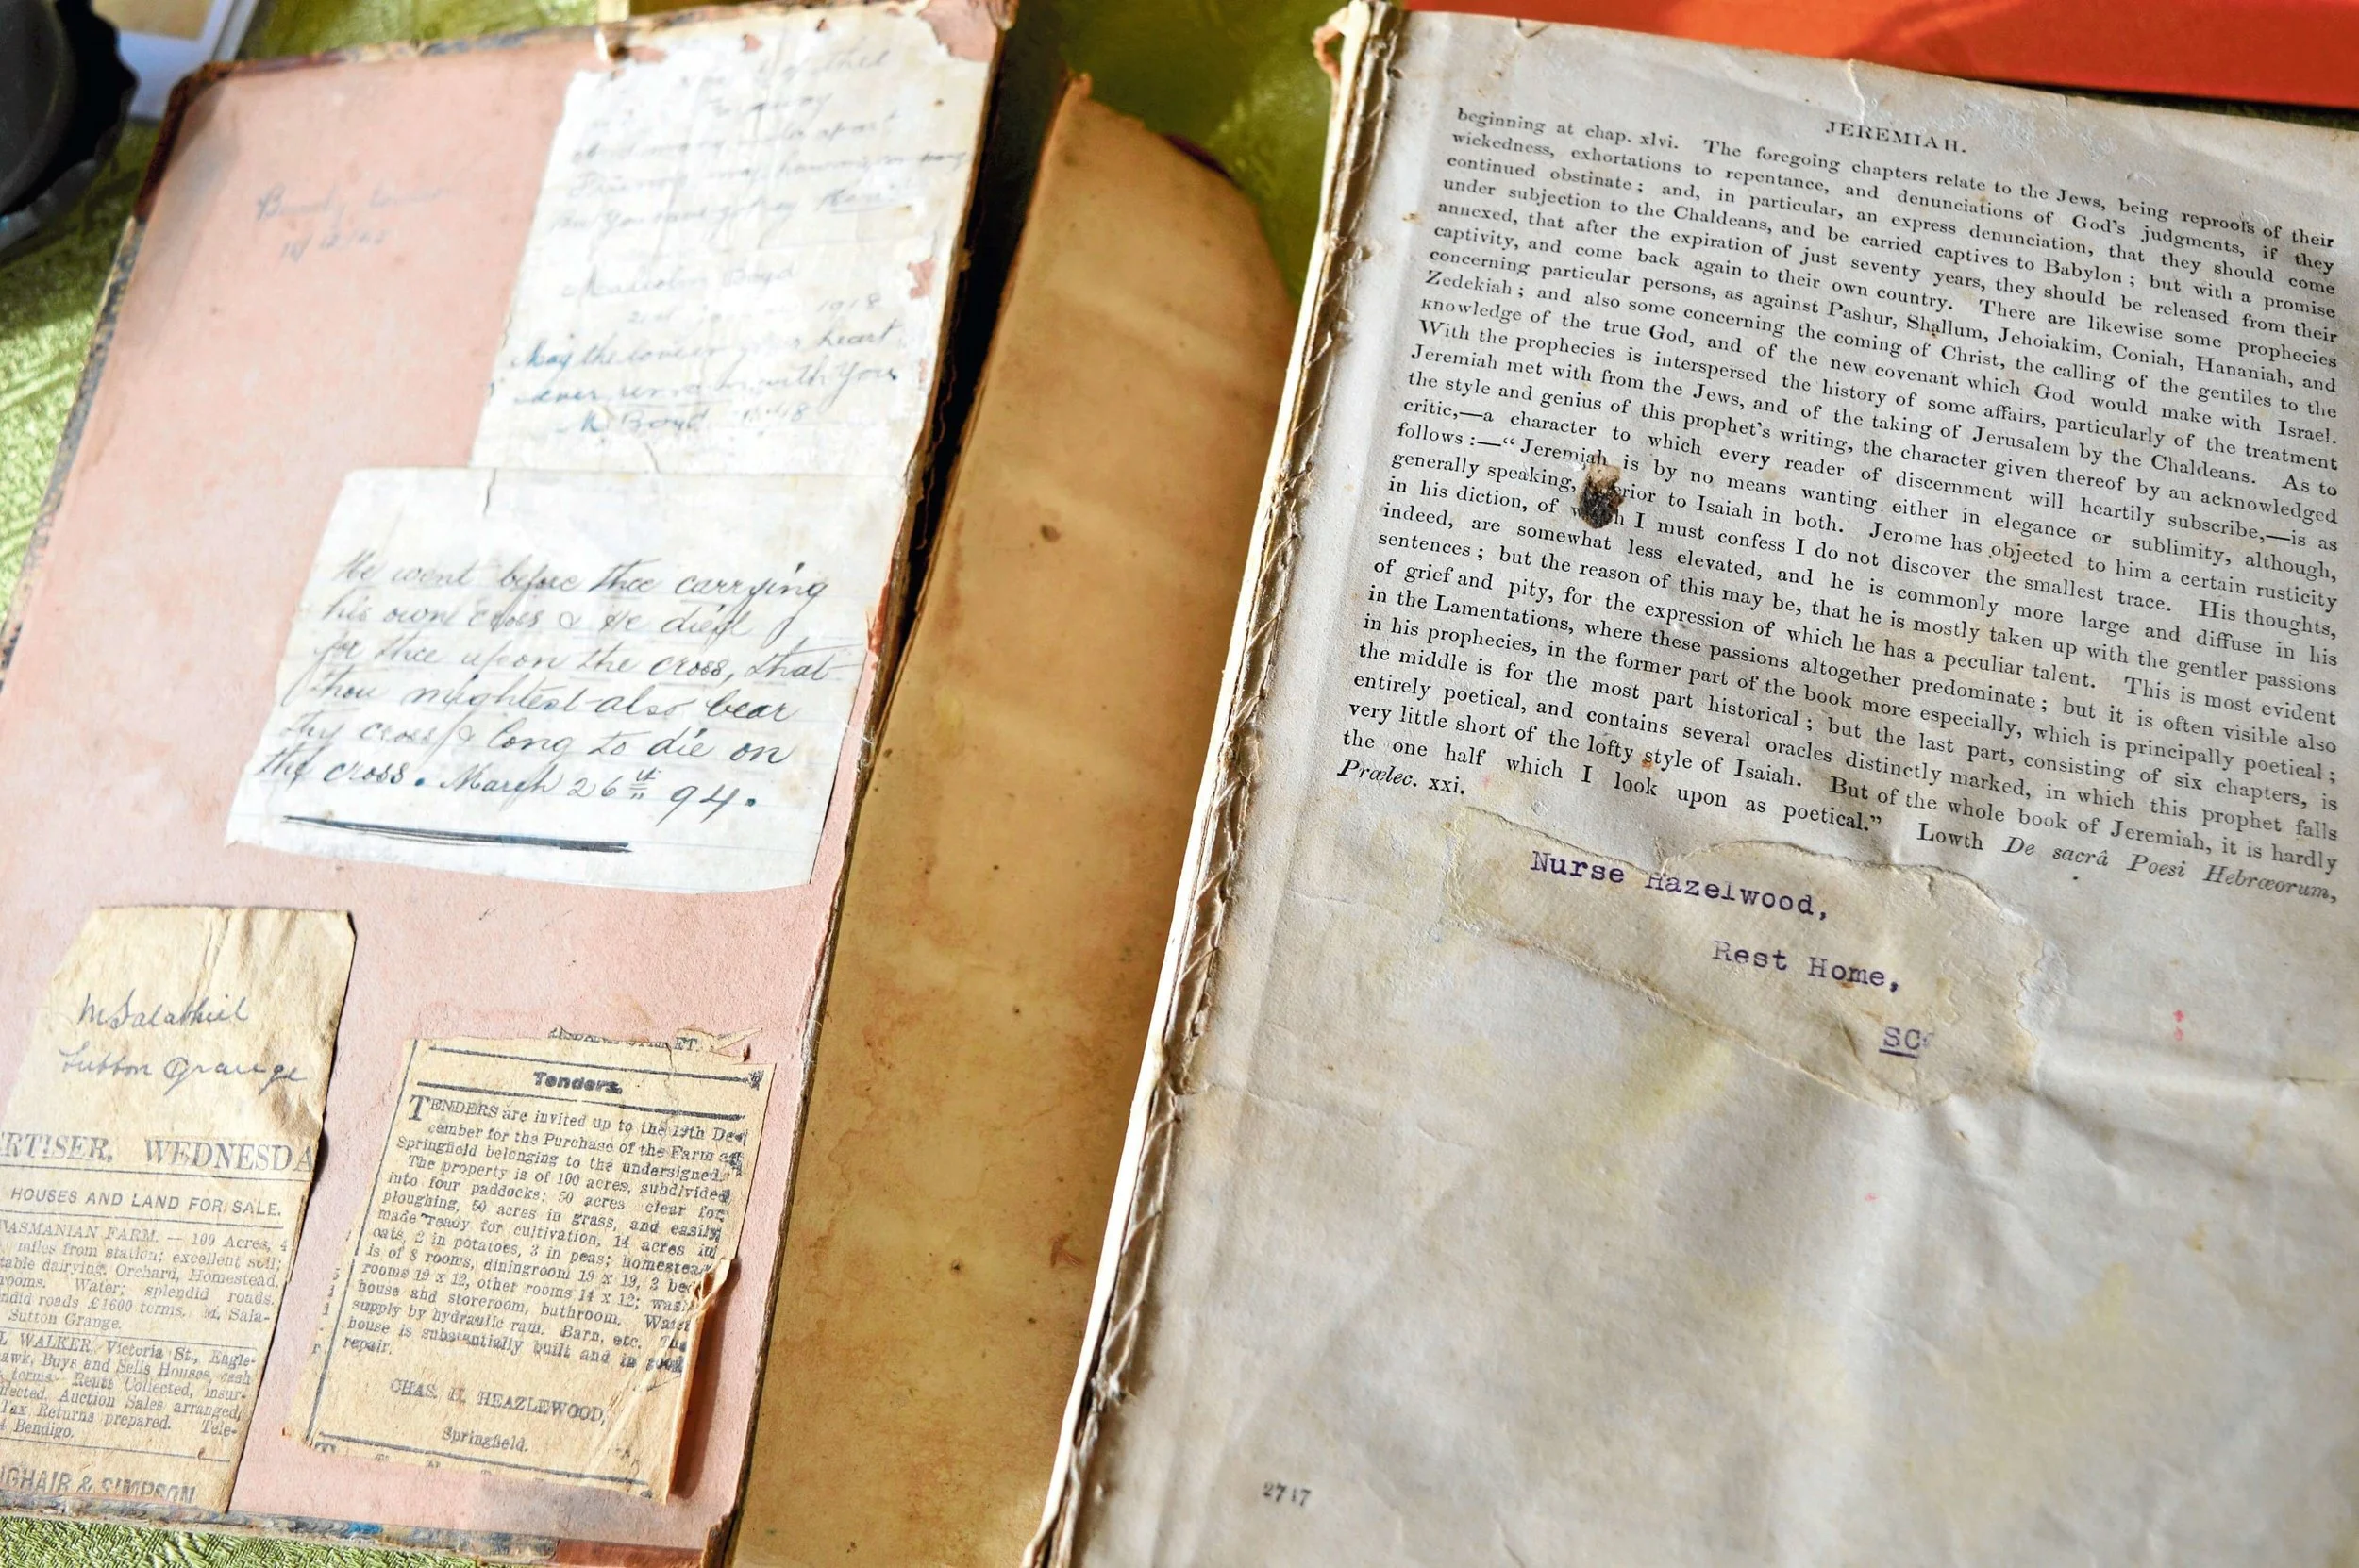 of this
away
Malcolm Boyd
1918
May the love in your heart
ever remain with you
M Boyd
He went before thee carrying
his own cross & He died
for thee upon the cross, that
thou mightest also bear
thy cross & long to die on
the cross. March 26th 94.
M Salathiel
Sutton Grange
RTISER, WEDNESDA
HOUSES AND LAND FOR SALE.
TASMANIAN FARM. — 100 Acres, 4
miles from station; excellent soil;
table dairying. Orchard, Homestead,
rooms. Water; splendid roads.
ndid roads £1600 terms. M. Sala-
Sutton Grange.
L WALKER, Victoria St., Eagle-
awk, Buys and Sells Houses, cash
terms. Rents Collected, insur-
fected, Auction Sales arranged,
Tax Returns prepared. Tele-
4 Bendigo.
GHAIR & SIMPSON
Tenders.
TENDERS are invited up to the 19th De-
cember for the Purchase of the Farm at
Springfield belonging to the undersigned.
The property is of 100 acres, subdivided
into four paddocks; 50 acres clear for
ploughing, 50 acres in grass, and easily
made ready for cultivation, 14 acres in
oats, 2 in potatoes, 3 in peas; homestead
is of 8 rooms, diningroom 19 x 19, 3 bed
rooms 19 x 12, other rooms 14 x 12; wash
house and storeroom, bathroom. Water
supply by hydraulic ram. Barn, etc. The
house is substantially built and in good
repair.
CHAS. H. HEAZLEWOOD,
Springfield.
JEREMIAH.
beginning at chap. xlvi. The foregoing chapters relate to the Jews, being reproofs of their
wickedness, exhortations to repentance, and denunciations of God's judgments, if they
continued obstinate; and, in particular, an express denunciation, that they should come
under subjection to the Chaldeans, and be carried captives to Babylon; but with a promise
annexed, that after the expiration of just seventy years, they should be released from their
captivity, and come back again to their own country. There are likewise some prophecies
concerning particular persons, as against Pashur, Shallum, Jehoiakim, Coniah, Hananiah, and
Zedekiah; and also some concerning the coming of Christ, the calling of the gentiles to the
knowledge of the true God, and of the new covenant which God would make with Israel.
With the prophecies is interspersed the history of some affairs, particularly of the treatment
Jeremiah met with from the Jews, and of the taking of Jerusalem by the Chaldeans. As to
the style and genius of this prophet's writing, the character given thereof by an acknowledged
critic,—a character to which every reader of discernment will heartily subscribe,—is as
follows:—"Jeremiah is by no means wanting either in elegance or sublimity, although,
generally speaking, rior to Isaiah in both. Jerome has objected to him a certain rusticity
in his diction, of which I must confess I do not discover the smallest trace. His thoughts,
indeed, are somewhat less elevated, and he is commonly more large and diffuse in his
sentences; but the reason of this may be, that he is mostly taken up with the gentler passions
of grief and pity, for the expression of which he has a peculiar talent. This is most evident
in the Lamentations, where these passions altogether predominate; but it is often visible also
in his prophecies, in the former part of the book more especially, which is principally poetical;
the middle is for the most part historical; but the last part, consisting of six chapters, is
entirely poetical, and contains several oracles distinctly marked, in which this prophet falls
very little short of the lofty style of Isaiah. But of the whole book of Jeremiah, it is hardly
the one half which I look upon as poetical." Lowth De sacrâ Poesi Hebræorum,
Prælec. xxi.
Nurse Hazelwood,
Rest Home,
SC
2717